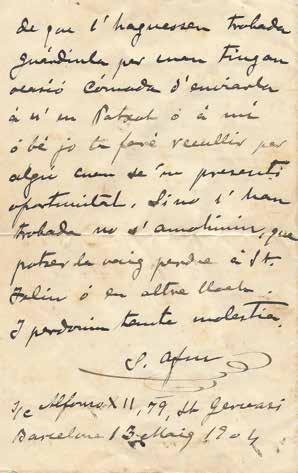 de que l'haguessen trobada
guárdinla per man tingan
ocasió cómoda d'enviarla
á n'en Patxot ó á mí
ó bé jo ta faré recullir per
algú cuan se'm presenti
oportunitat. Si no l'han
trobada no s'amohinin, que
potser la vaig perdre á St.
Feliu ó en altre lloch.
I perdonin tanta molestia.
S.
S/c Alfonso XII, 79, St Gervasi
Barcelona 13 Maig 1904